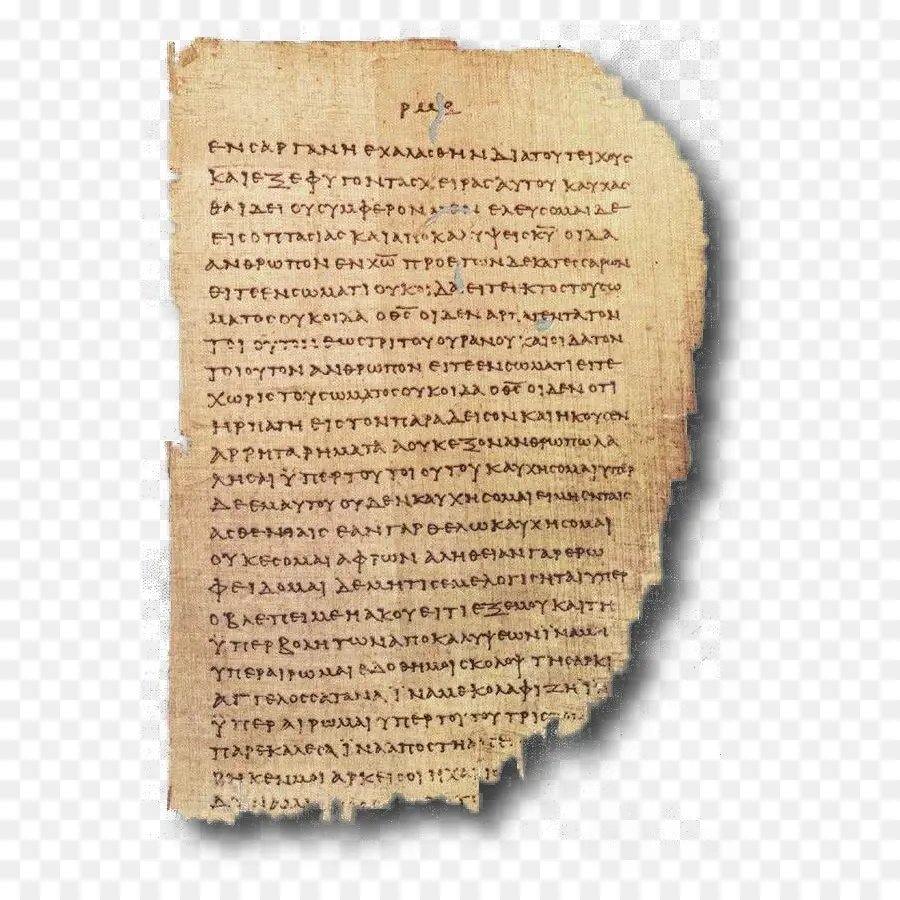 ΕΝϹΑΡΓΑΝΗ ΕΧΑΛΑϹΘΗΝ ΔΙΑΤΟΥΤΕΙΧΟΥϹ
ΚΑΙΕΞΕΦΥΓΟΝΤΑϹΧΕΙΡΑϹΑΥΤΟΥ ΚΑΥΧΑϹ
ΘΑΙΔΕΙ ΟΥϹΥΜΦΕΡΟΝ ΜΕΝ ΕΛΕΥϹΟΜΑΙΔΕ
ΕΙϹΟΠΤΑϹΙΑϹ ΚΑΙΑΠΟΚΑΛΥΨΕΙϹΚ̅Υ̅ ΟΙΔΑ
ΑΝΘΡΩΠΟΝ ΕΝΧ̅Ω̅ ΠΡΟΕΤΩΝΔΕΚΑΤΕϹϹΑΡΩΝ
ΕΙΤΕΕΝϹΩΜΑΤΙΟΥΚΟΙΔΑ ΕΙΤΕΕΚΤΟϹΤΟΥϹΩ
ΜΑΤΟϹΟΥΚΟΙΔΑ ΟΘ̅Ϲ̅ ΟΙΔΕΝ ΑΡΠΑΓΕΝΤΑΤΟΝ
ΤΟΙΟΥΤΟΝ ΕΩϹΤΡΙΤΟΥΟΥΡΑΝΟΥ ΚΑΙΟΙΔΑΤΟΝ
ΤΟΙΟΥΤΟΝ ΑΝΘΡΩΠΟΝ ΕΙΤΕΕΝϹΩΜΑΤΙΕΙΤΕ
ΧΩΡΙϹΤΟΥϹΩΜΑΤΟϹΟΥΚΟΙΔΑ ΟΘ̅Ϲ̅ ΟΙΔΕΝ ΟΤΙ
ΗΡΠΑΓΗ ΕΙϹΤΟΝΠΑΡΑΔΕΙϹΟΝΚΑΙΗΚΟΥϹΕΝ
ΑΡΡΗΤΑΡΗΜΑΤΑ ΑΟΥΚΕΞΟΝΑΝΘΡΩΠΩΛΑ
ΛΗϹΑΙ ΫΠΕΡΤΟΥΤΟΙΟΥΤΟΥ ΚΑΥΧΗϹΟΜΑΙΥΠΕΡ
ΔΕΕΜΑΥΤΟΥ ΟΥΔΕΝΚΑΥΧΗϹΟΜΑΙΕΙΜΗΕΝΤΑΙϹ
ΑϹΘΕΝΕΙΑΙϹ ΕΑΝΓΑΡΘΕΛΩΚΑΥΧΗϹΟΜΑΙ
ΟΥΚΕϹΟΜΑΙ ΑΦΡΩΝ ΑΛΗΘΕΙΑΝΓΑΡΕΡΩ
ΦΕΙΔΟΜΑΙ ΔΕΜΗΤΙϹΕΜΕΛΟΓΙϹΗΤΑΙΥΠΕΡ
ΟΒΛΕΠΕΙΜΕΗΑΚΟΥΕΙΤΙΕΞΕΜΟΥΚΑΙΤΗ
ΫΠΕΡΒΟΛΗΤΩΝΑΠΟΚΑΛΥΨΕΩΝΪΝΑΜΗ
ΥΠΕΡΑΙΡΩΜΑΙ ΕΔΟΘΗΜΟΙϹΚΟΛΟΨ ΤΗϹΑΡΚΙ
ΑΓΓΕΛΟϹϹΑΤΑΝΑ ΪΝΑΜΕΚΟΛΑΦΙΖΗΪΝΑ
ΫΠΕΡΑΙΡΩΜΑΙ ΥΠΕΡΤΟΥΤΟΥΤΡΙϹ
ΠΑΡΕΚΑΛΕϹΑ ΪΝΑΑΠΟϹΤΗ
ΡΗΚΕΝΜΟΙ ΑΡΚΕΙϹΟΙΗΧΑΡΙϹ